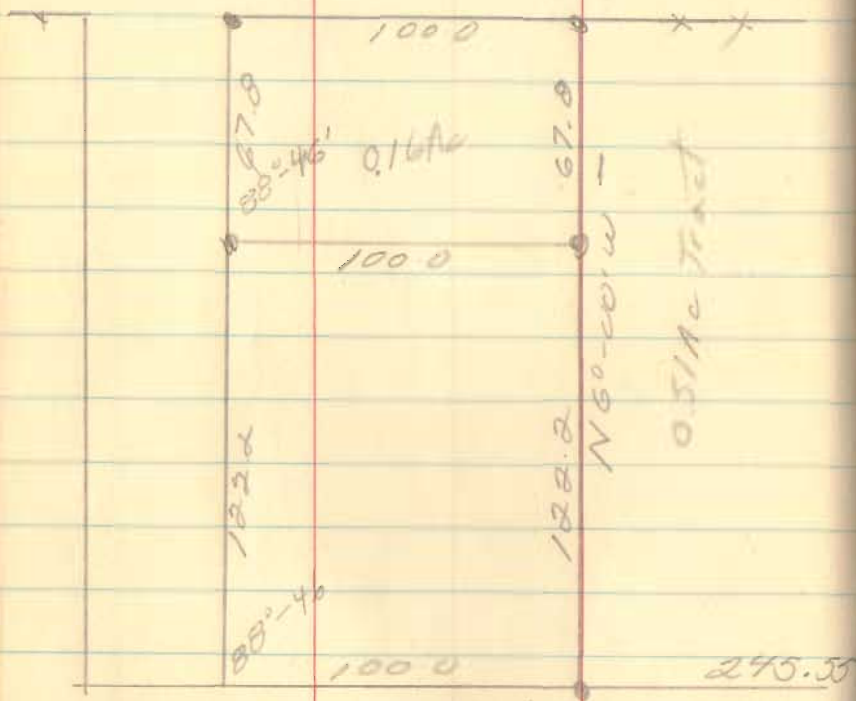 100 0
67.8
67.8
88°-46'
0.16Ac
100 0
N 6°-00' W
0.51 Ac Tract
122.2
122.2
88°-46
100 0
245.55